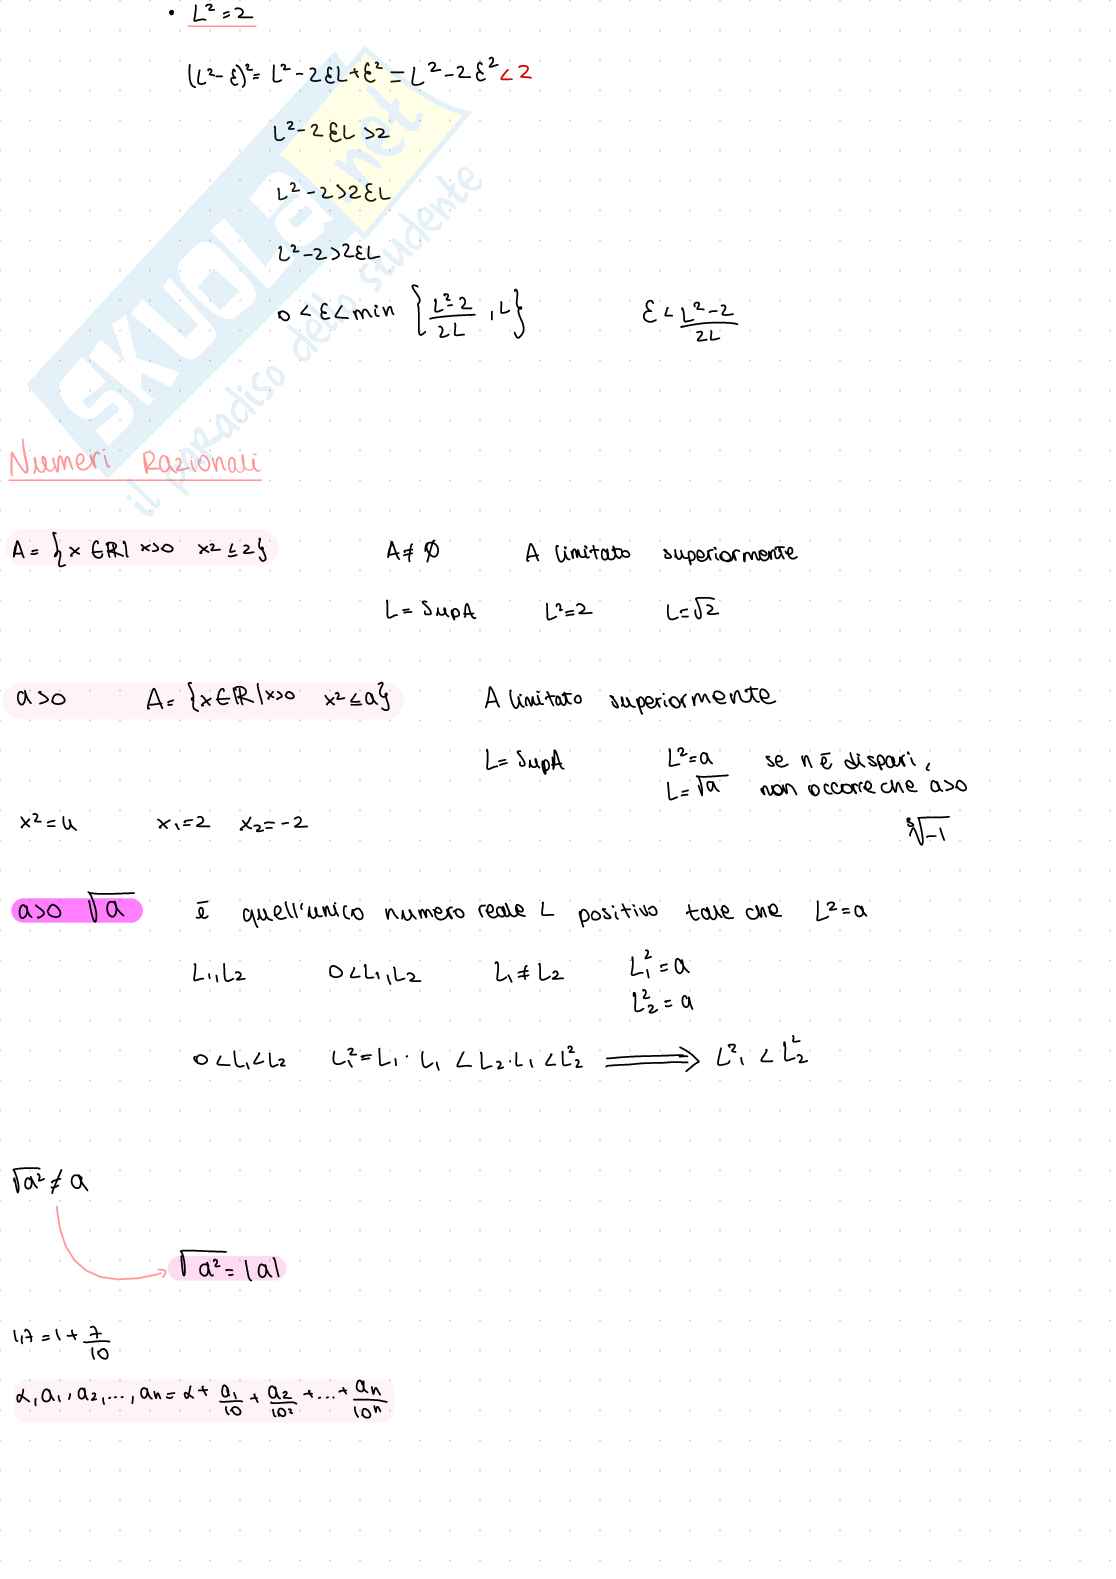 • L² = 2
(L² - ε)² = L² - 2εL + ε² = L² - 2ε² < 2
L² - 2εL > 2
L² - 2 > 2εL
L² - 2 > 2εL
0 < ε < min { (L² - 2)/(2L) , L }    ε < (L² - 2)/(2L)
SKUOLA.net
il paradiso dello studente
Numeri Razionali
A = {x ∈ ℝ | x>0  x² ≤ 2}    A ≠ ∅    A limitato superiormente
L = Sup A    L² = 2    L = √2
a>0    A = {x ∈ ℝ | x>0  x² ≤ a}    A limitato superiormente
L = Sup A    L² = a    se n è dispari,
L = √a    non occorre che a>0
x² = 4    x₁ = 2    x₂ = -2    ³√-1
a>0 √a    è quell'unico numero reale L positivo tale che L² = a
L₁, L₂    0 < L₁, L₂    L₁ ≠ L₂    L₁² = a
L₂² = a
0 < L₁ < L₂    L₁² = L₁ · L₁ < L₂ · L₁ < L₂²  ⟹  L²₁ < L₂²
√a² ≠ a
√a² = |a|
1,7 = 1 + 7/10
α, a₁, a₂, ..., aₙ = α + a₁/10 + a₂/10² + ... + aₙ/10ⁿ